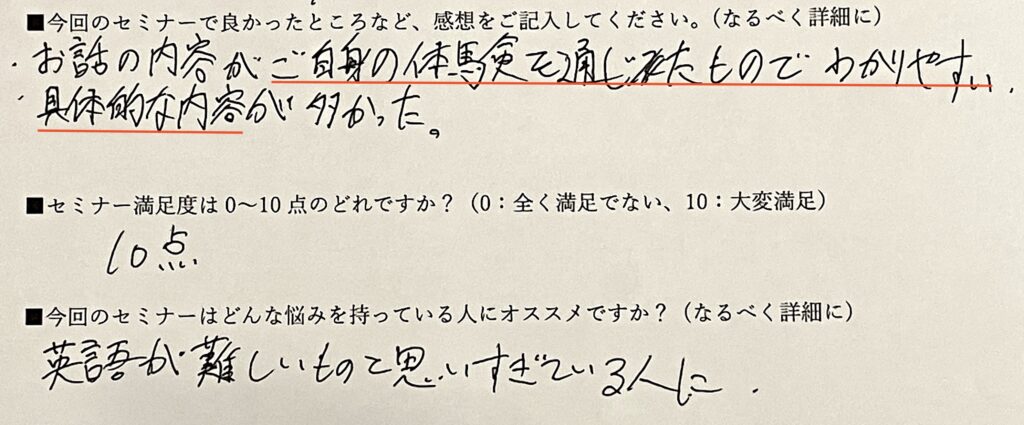 ■今回のセミナーで良かったところなど、感想をご記入してください。（なるべく詳細に）
・お話の内容がご自身の体験を通じれたものでわかりやすい．
・具体的な内容が多かった。
■セミナー満足度は0～10点のどれですか？（0：全く満足でない、10：大変満足）
10点
■今回のセミナーはどんな悩みを持っている人にオススメですか？（なるべく詳細に）
英語が難しいものと思いすぎている人に．